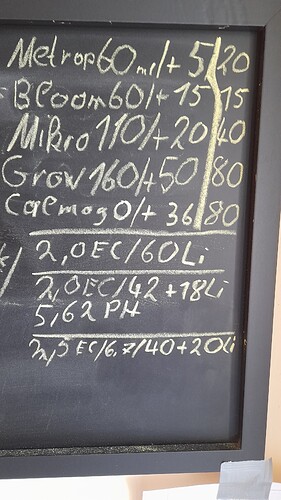 Metrop 60ml/+ 5/20
Bloom 60/+ 15/15
Mikro 110/+20/40
Grow 160/+50/80
Calmag 0/+ 36/80
2,0EC/60Li
2,0EC/42+18Li
5,62 PH
2,5 EC/6,7/40+20Li